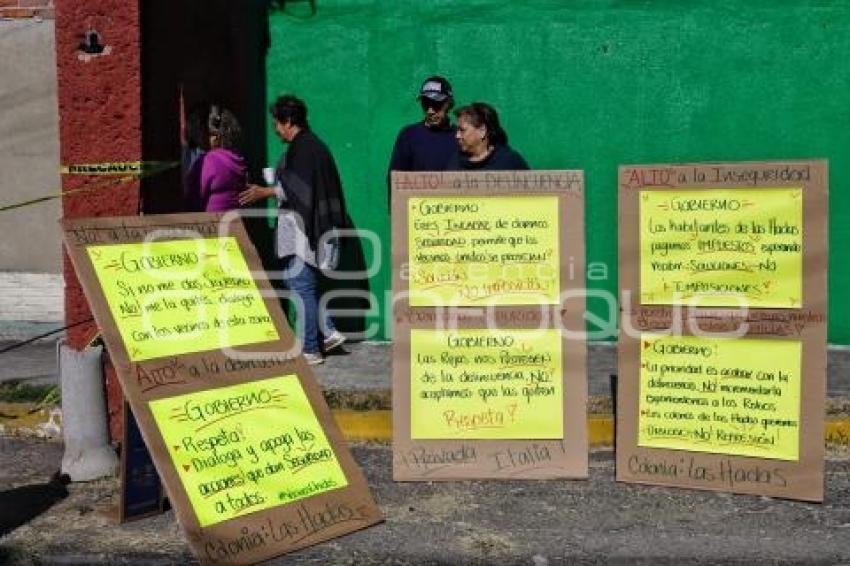 PRECAUC
No a la Inseguridad
=GOBIERNO=
Si no me das Seguridad
¡NO! me la quites, dialoga
con los vecinos de esta zona.
ALTO a la delincuencia
=GOBIERNO=
Respeta!
Dialoga y apoya las
acciones que dan SEGURIDAD
a todos
Colonia: Las Hadas
ALTO a la DELINCUENCIA
GOBIERNO:
ERES INCAPAZ de darnos
SEGURIDAD permite que los
Vecinos UNIDOS se PROTEJAN
SOLUCIÓN
NO IMPOSICIÓN
GOBIERNO
Las Rejas NOS PROTEGEN
de la delincuencia, NO
aceptamos que las quiten
Respeta!
Privada Italia
ALTO a la Inseguridad
=GOBIERNO=
Los habitantes de Las Hadas
pagamos IMPUESTOS esperando
recibir SOLUCIONES NO
IMPOSICIONES!
GOBIERNO!
La prioridad es acabar con la
delincuencia, NO incrementarla
exponiendo a los Robos
las colonias de las Hadas
DIÁLOGO ¡NO! REPRESIÓN!
Colonia: Las Hadas
agencia
enfoque